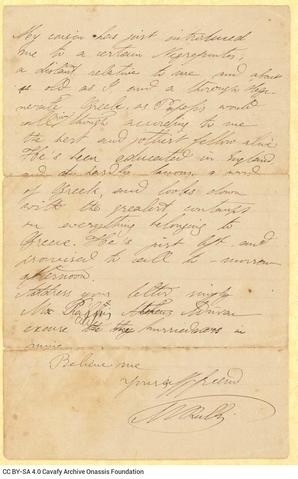 My cousin has just introduced
me to a certain Negrepontis,
a distant relative to me and about
as old as I and a through dege-
nerate Greek, as Papafis would
call him though according to me
the best and jolliest fellow alive
He's been educated in England
and he hardly knows a word
of Greek, and looks down
with the greatest contempt
on everything belonging to
Greece. He's just left and
promised to call to-morrow
afternoon.
Address your letter simply
Athens
excuse the hurriedness in
Believe me
Your aff friend
CC BY-SA 4.0 Cavafy Archive Onassis Foundation